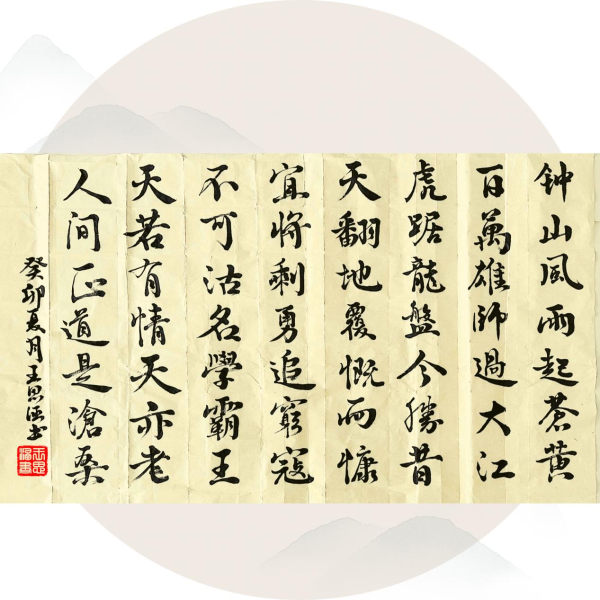 钟山風雨起蒼黄
百萬雄師過大江
虎踞龍盤今勝昔
天翻地覆慨而慷
宜将剩勇追窮寇
不可沽名學霸王
天若有情天亦老
人间正道是滄桑
癸卯夏月王思书